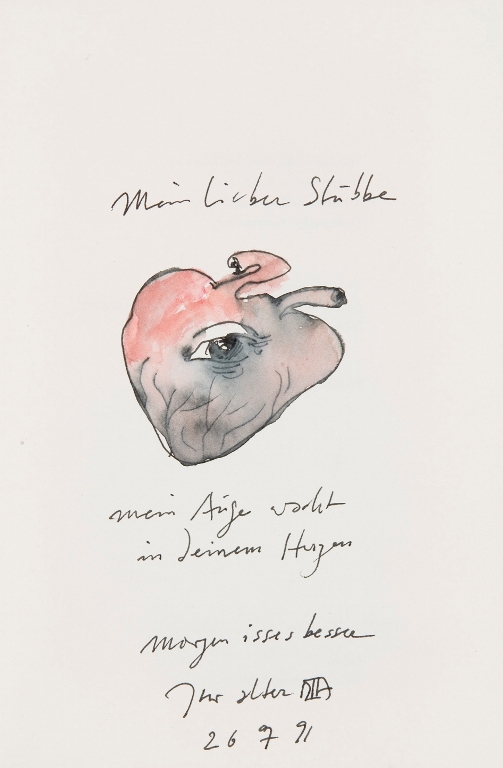 Mein lieber Stübbe
mein Auge wacht
in deinem Herzen
morgen isses besser
alter
26 7 91